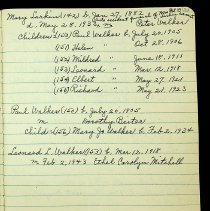 Mary Larkin (142) b. Jan. 27, 1882
d. May 28, 1936 m. Peter Walker
Children: (150) Paul Walker b. July 20, 1905
(151) Helen " Oct 28, 1906
(152) Mildred " June 18, 1911
(153) Leonard " Mar. 12, 1918
(154) Elbert " May 27, 1921
(155) Richard " May 21, 1923
Paul Walker (150) b. July 20, 1905
m Dorothy Bertos
Child: (156) Mary Jo Walker b Feb. 2, 1934
Leonard L. Walker (153) b. Mar 12, 1918
m Feb 2, 1943 Ethel Carolyn Mitchell